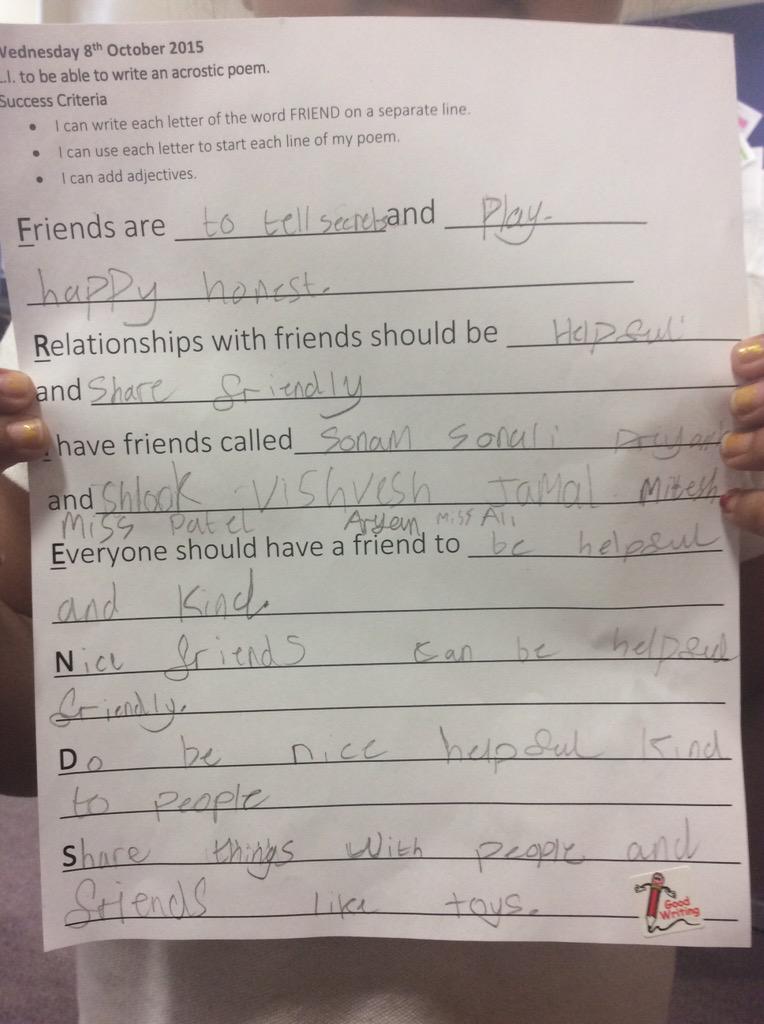 Wednesday 8th October 2015
L.I. to be able to write an acrostic poem.
Success Criteria
• I can write each letter of the word FRIEND on a separate line.
• I can use each letter to start each line of my poem.
• I can add adjectives.
Friends are to tell secrets and Play.
happy honest.
Relationships with friends should be Helpful
and Share friendly
I have friends called Sonam Sonali
and Shlook Vishvesh Jamal Mitesh
Miss Patel Aryan Miss Ali
Everyone should have a friend to be helpful
and kind.
Nice friends can be helpful
friendly.
Do be nice helpful kind
to people
Share things with people and
friends like toys.
Good
Writing